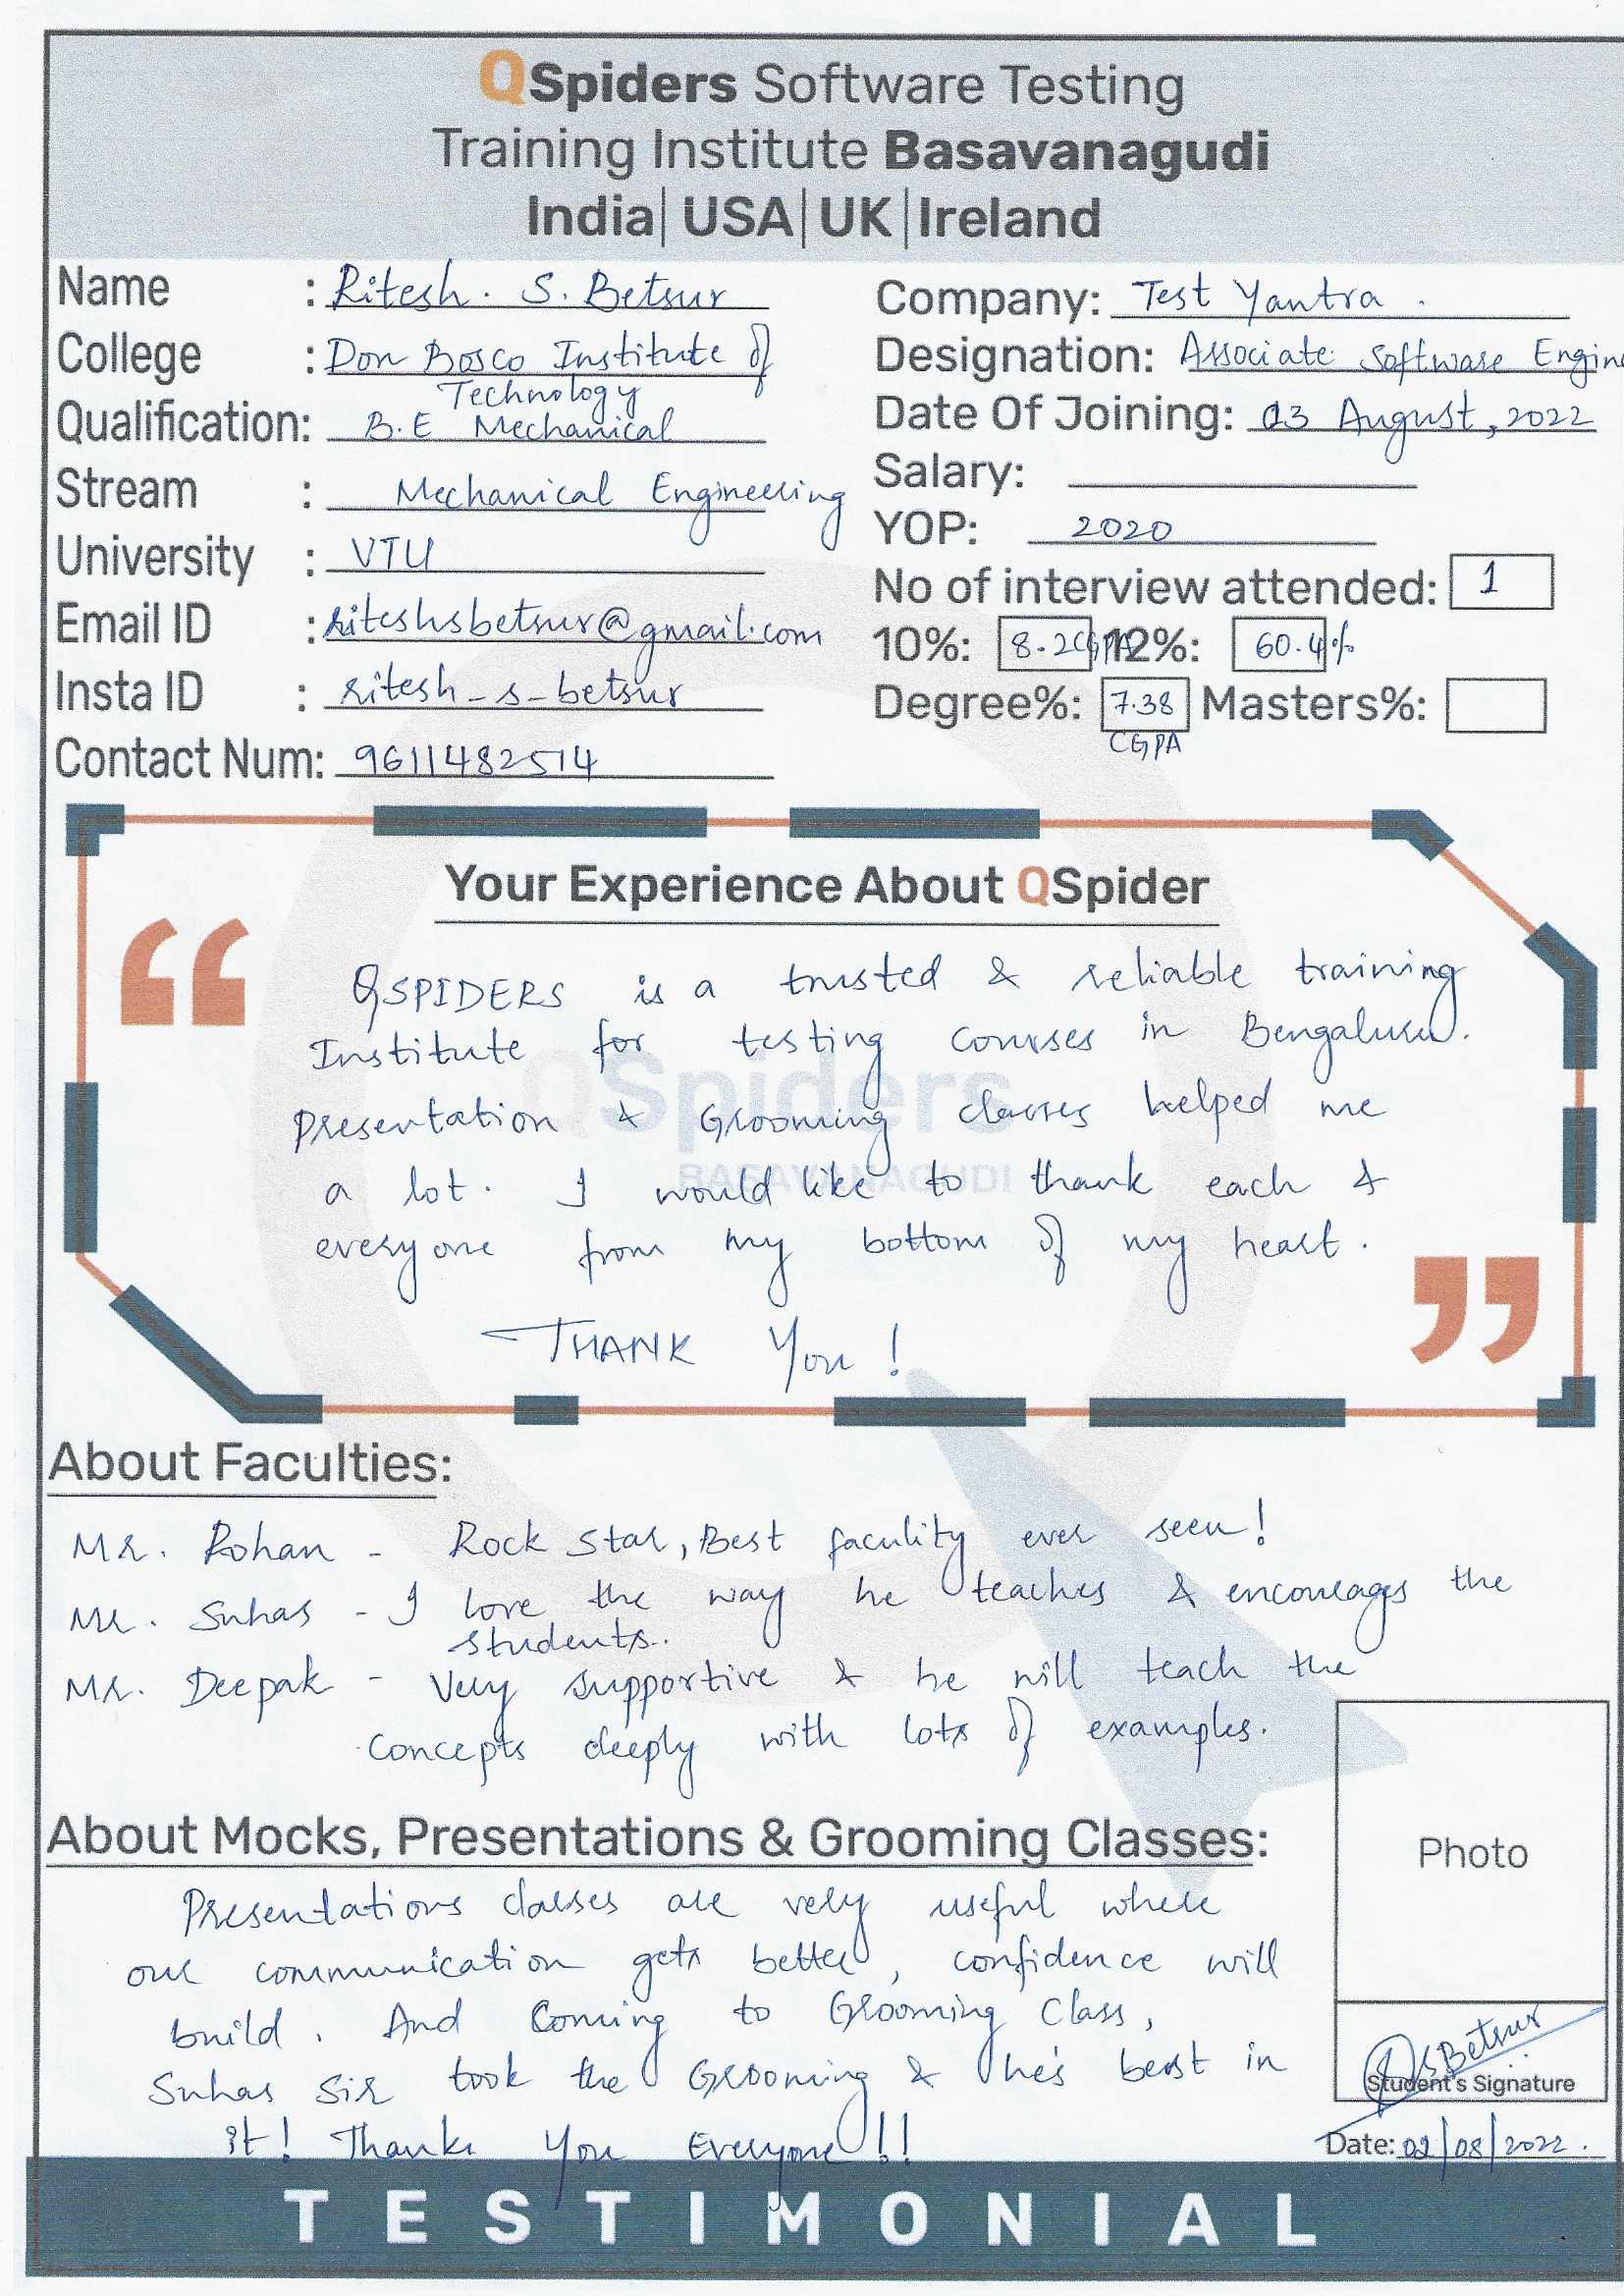 QSpiders Software Testing
Training Institute Basavanagudi
India| USA| UK |Ireland
Name : Ritesh. S. Betsur
College : Don Bosco Institute of
Technology
Qualification: B.E Mechanical
Stream : Mechanical Engineering
University : VTU
Email ID : riteshsbetsur@gmail.com
Insta ID : ritesh_s_betsur
Contact Num: 9611482514
Company: Test Yantra .
Designation: Associate Software Engine
Date Of Joining: 03 August, 2022
Salary:
YOP: 2020
No of interview attended: 1
10%: 8.2CGPA 12%: 60.4%
Degree%: 7.38 Masters%:
CGPA
Your Experience About QSpider
QSPIDERS is a trusted & reliable training
Institute for testing courses in Bengaluru.
Presentation & Grooming classes helped me
a lot. I would like to thank each &
everyone from my bottom of my heart.
THANK You !
QSpiders
BASAVANAGUDI
About Faculties:
Mr. Rohan - Rock Star, Best faculity ever seen!
Mr. Suhas - I love the way he teaches & encourages the
students.
Mr. Deepak - Very supportive & he will teach the
Concepts deeply with lots of examples.
About Mocks, Presentations & Grooming Classes:
Presentations classes are very useful where
our communication gets better, confidence will
build. And Coming to Grooming Class,
Suhas Sir took the Grooming & he's best in
it! Thanks You Everyone!!
Photo
RSBetsur
Student's Signature
Date: 02/08/2022.
TESTIMONIAL